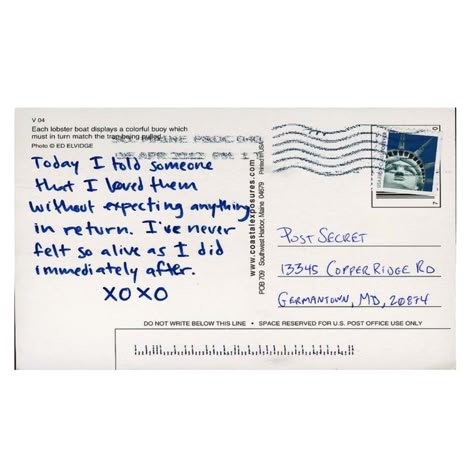 V 04
Each lobster boat displays a colorful buoy which
must in turn match the trap being pulled.
Photo © ED ELVIDGE
Today I told someone
that I loved them
without expecting anything
in return. I've never
felt so alive as I did
immediately after.
XOXO
www.coastalexposures.com
POB 709 Southwest Harbor, Maine 04679
Printed in USA
POST SECRET
13345 COPPER RIDGE RD
GERMANTOWN, MD, 20874
DO NOT WRITE BELOW THIS LINE • SPACE RESERVED FOR U.S. POST OFFICE USE ONLY